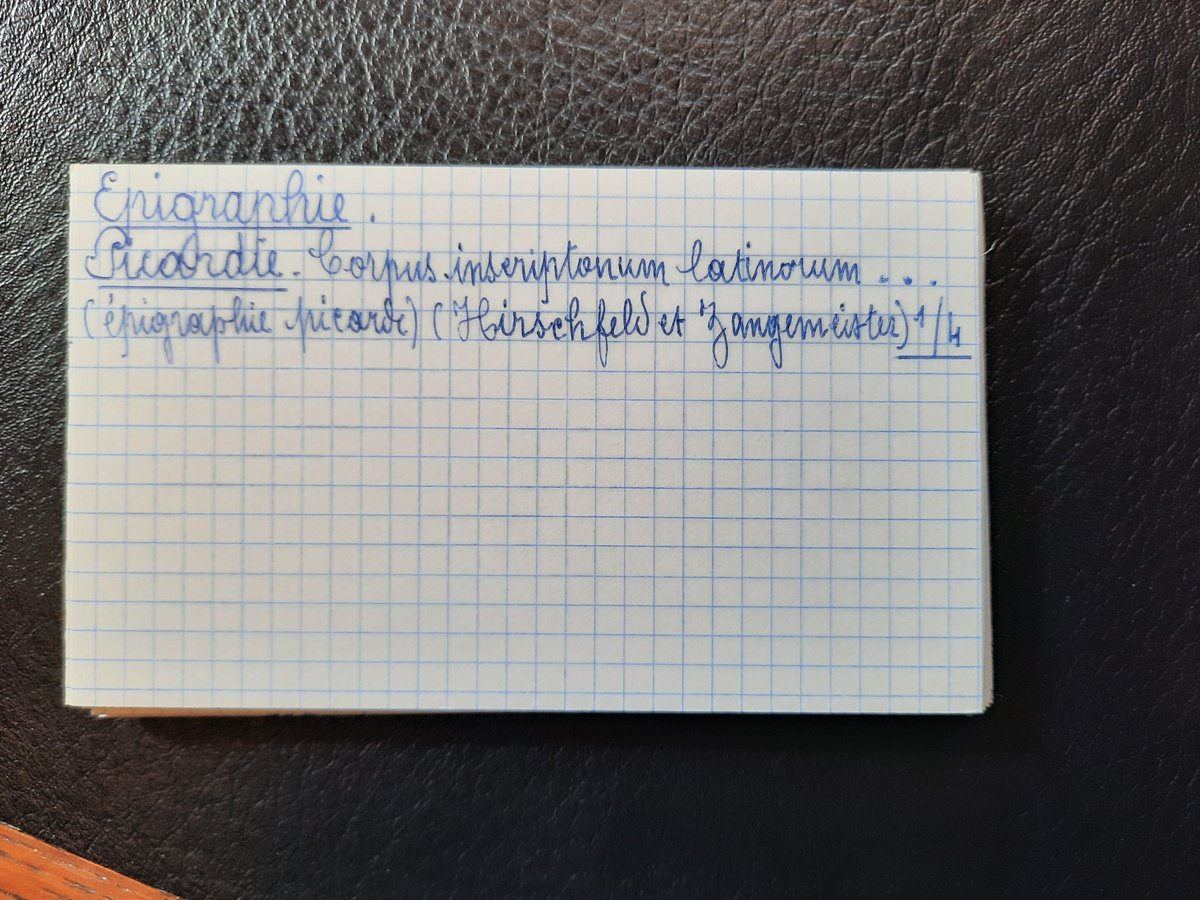 Epigraphie.
Picardie. Corpus inscriptonum latinorum ....
(épigraphie picarde) (Hirschfeld et Zangemeister) 1/4